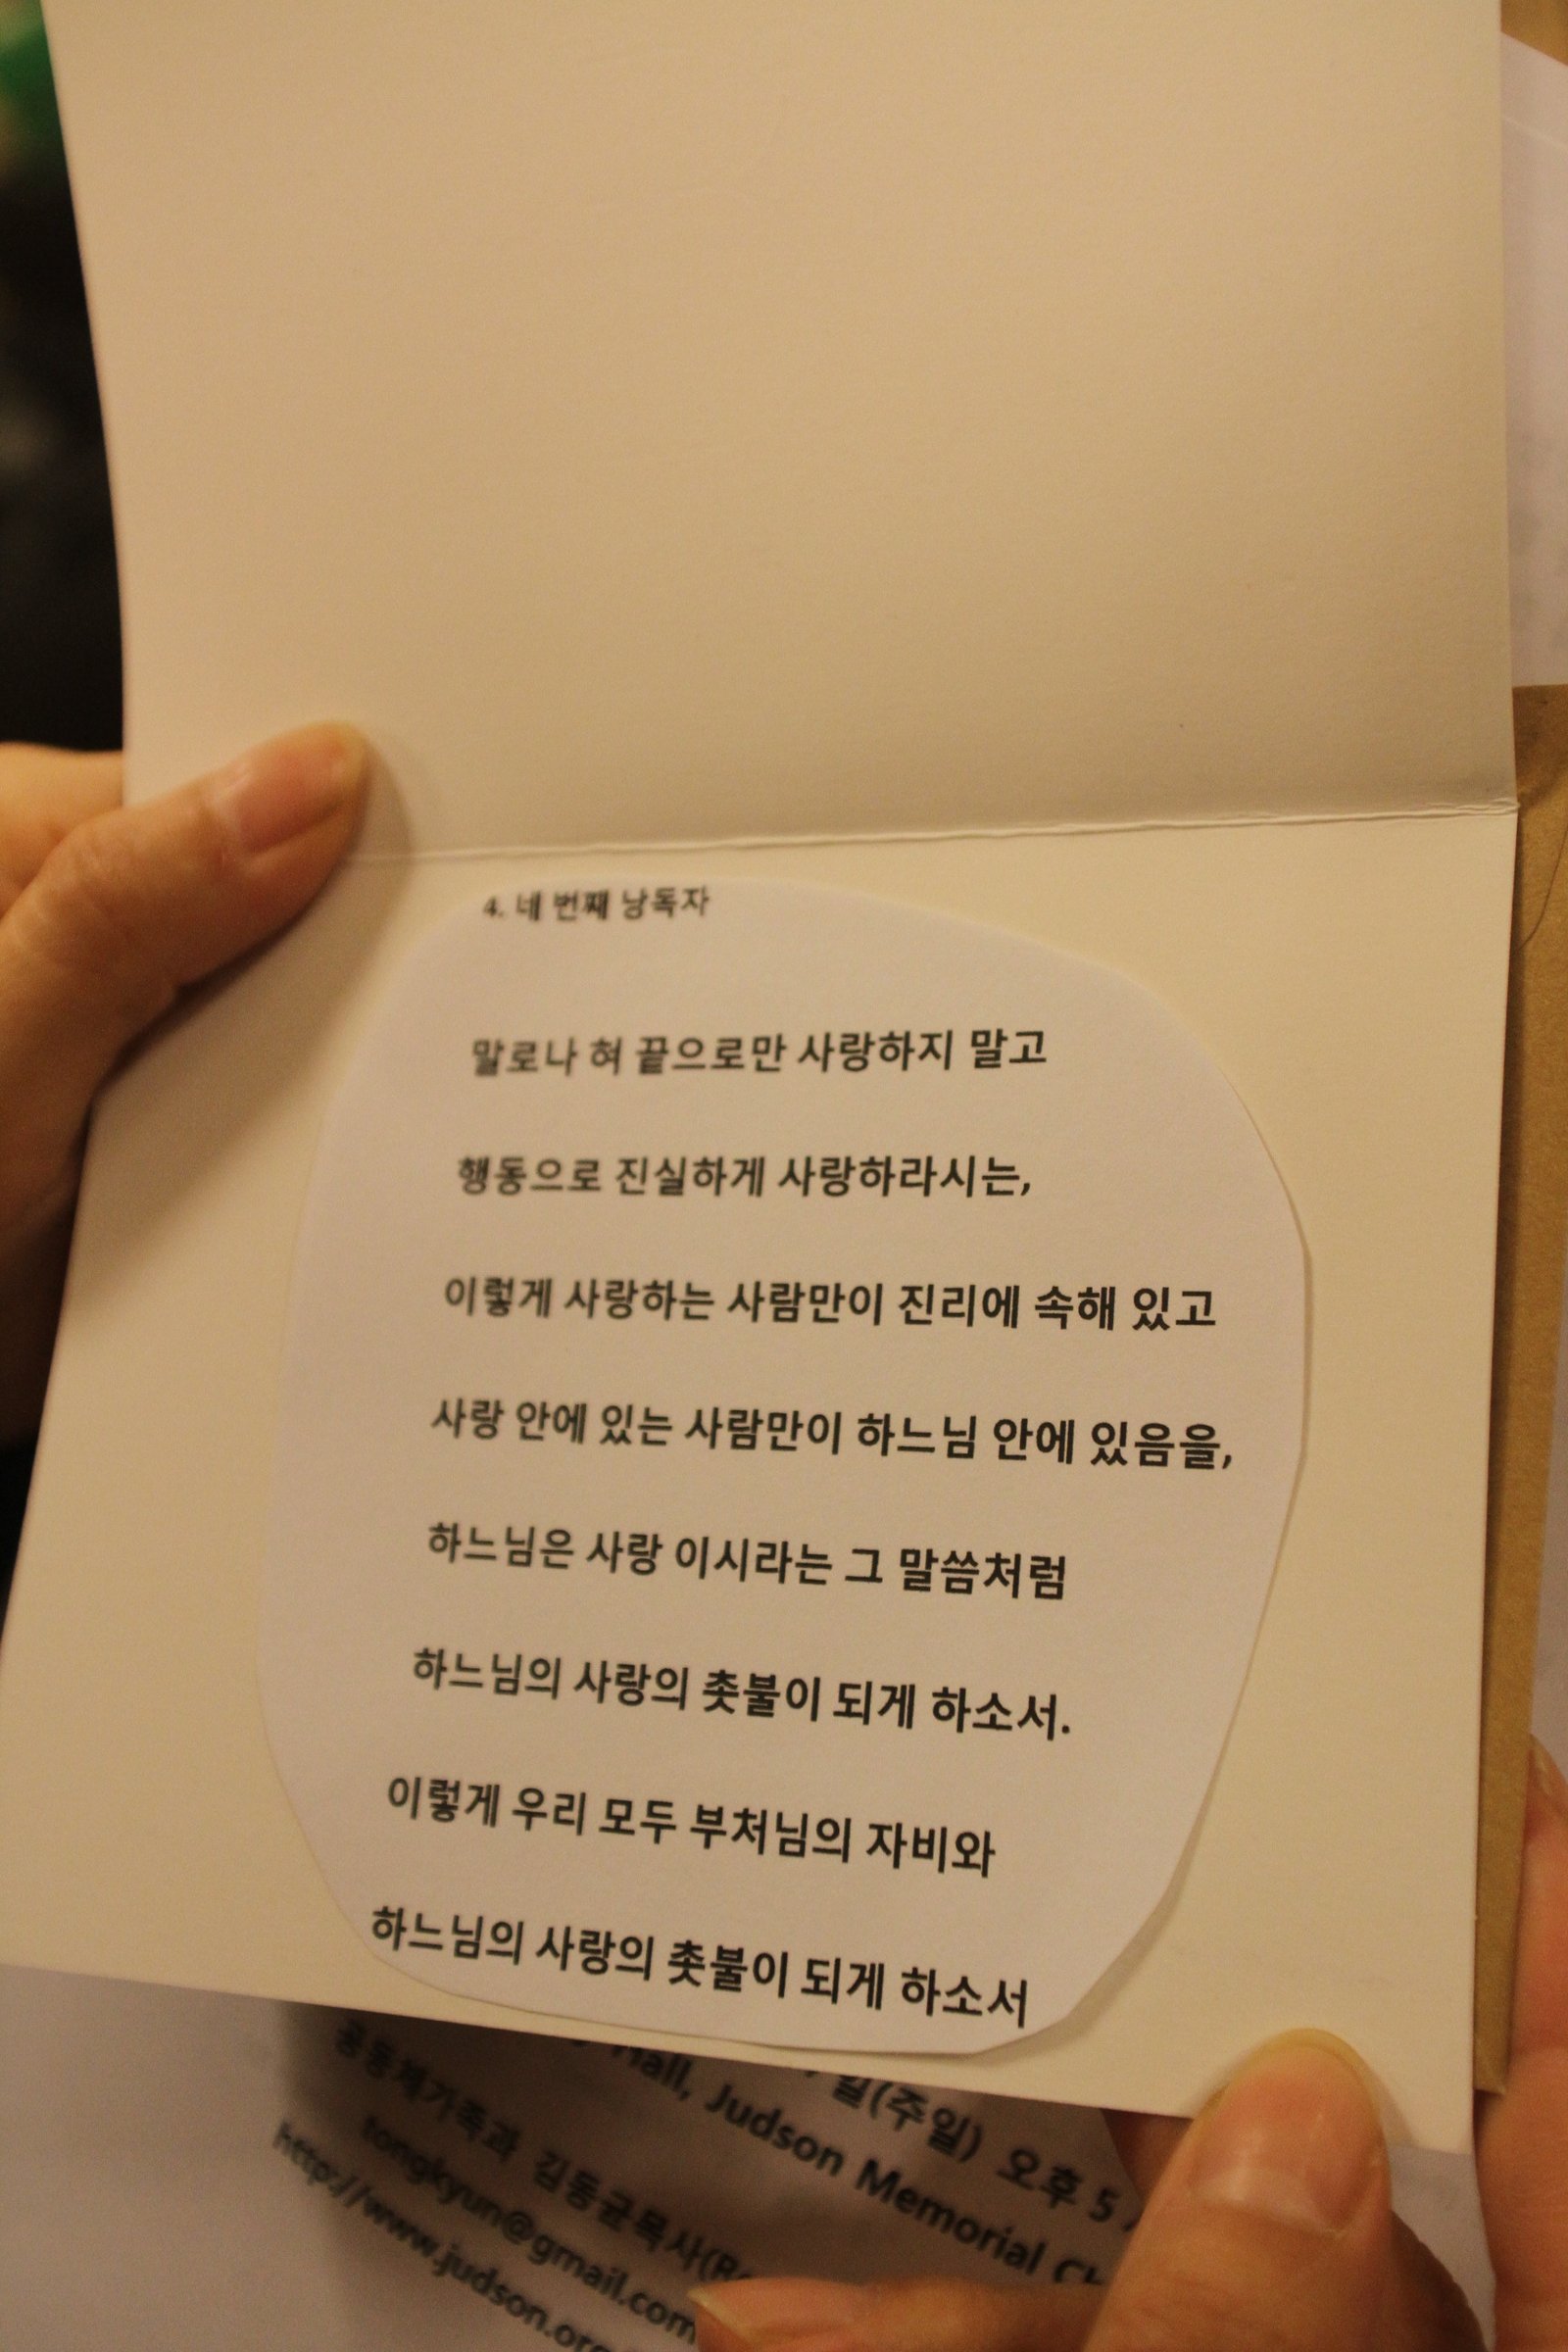 4. 네 번째 낭독자
말로나 혀 끝으로만 사랑하지 말고
행동으로 진실하게 사랑하라시는,
이렇게 사랑하는 사람만이 진리에 속해 있고
사랑 안에 있는 사람만이 하느님 안에 있음을,
하느님은 사랑 이시라는 그 말씀처럼
하느님의 사랑의 촛불이 되게 하소서.
이렇게 우리 모두 부처님의 자비와
하느님의 사랑의 촛불이 되게 하소서
일(주일) 오후 5
Hall, Judson Memorial
공동체가족과 김동균목사
tongkyun@gmail.com
http://www.judson.org